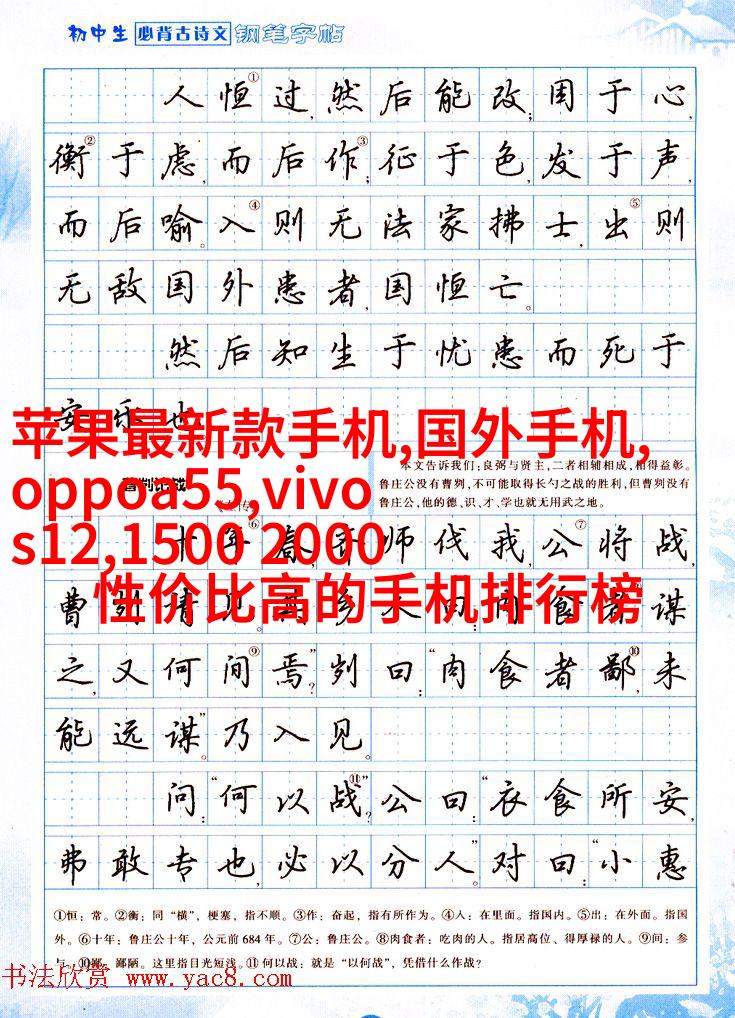 初中生 必背古诗文 钢笔字帖
人恒①过,然后能改;困于心,
衡②于虑,而后作③;征于色,发于声,
而后喻。入④则无法家拂士,出⑤则
无敌国外患者,国恒亡。
然后知生于忧患而死于
安乐也
苹果最新款手机,国外手机,
oppoa55,vivo
s12,1500 2000
性价比高的手机排行榜
本文告诉我们:良弼与贤主,二者相辅相成,相得益彰。
鲁庄公没有曹刿,不可能取得长勺之战的胜利,但曹刿没有
鲁庄公,他的德、识、才、学也就无用武之地。
曹刿论战
《左传》
十年⑥春,齐师伐我,公⑦将战,
曹刿请见。其乡人曰:“肉食者谋
之,又何间⑨焉?”刿曰:“肉食者鄙⑩,未
能远谋。”乃入见。
问:“何以战⑪?”公曰:“衣食所安,
弗敢专也,必以分人。”对曰:“小惠
①恒:常。②衡:同“横”,梗塞,指不顺。③作:奋起,指有所作为。④入:在里面。指国内。⑤出:在外面。指国
外。⑥十年:鲁庄公十年,公元前684年。⑦公:鲁庄公。⑧肉食者:吃肉的人。指居高位、得厚禄的人。⑨间:参
与。⑩鄙:鄙陋。这里指目光短浅。⑪何以战:就是“以何战”,凭借什么作战?
书法欣赏 www.yac8.com